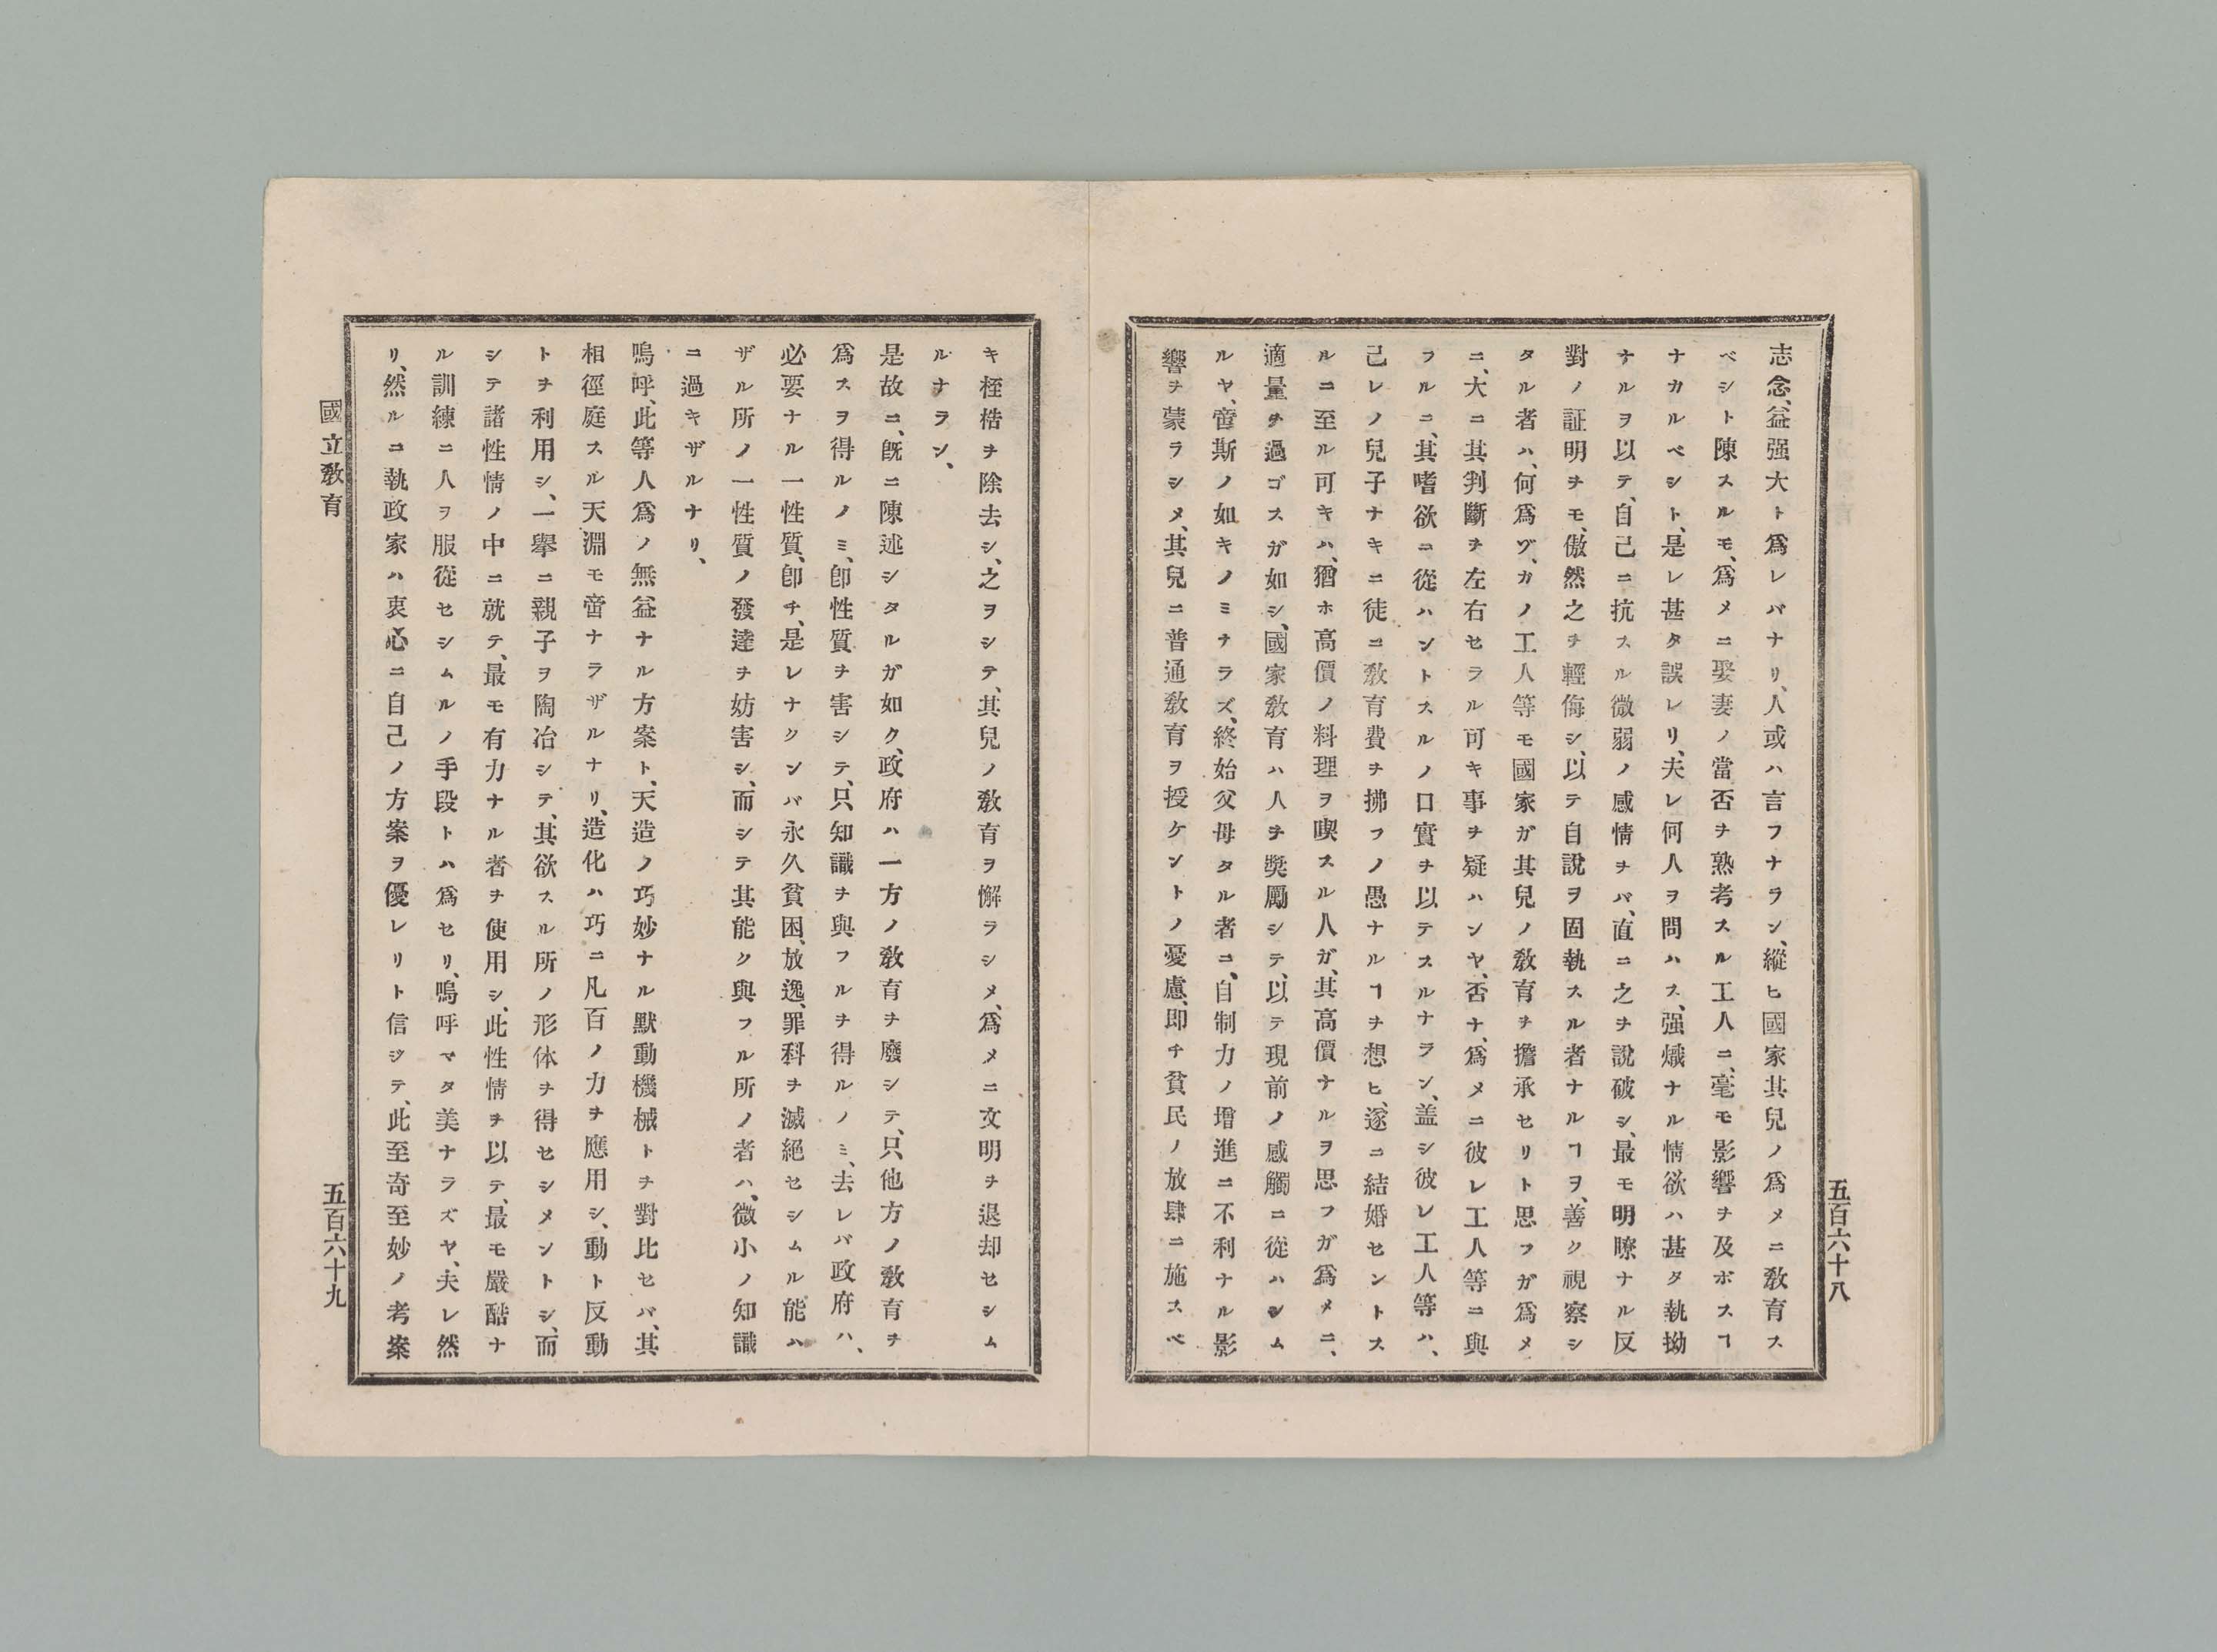 五百六十八
志念、益强大ト爲レバナリ、人或ハ言フナラン、縱ヒ國家其兒ノ爲メニ敎育ス
ベシト陳スルモ、爲メニ娶妻ノ當否ヲ熟考スル工人ニ、毫モ影響ヲ及ボスヿ
ナカルベシト、是レ甚タ誤レリ、夫レ何人ヲ問ハス、强熾ナル情欲ハ甚タ執拗
ナルヲ以テ、自己ニ抗スル微弱ノ感情ヲバ、直ニ之ヲ說破シ、最モ明瞭ナル反
對ノ証明ヲモ、傲然之ヲ輕侮シ、以テ自說ヲ固執スル者ナルヿヲ、善ク視察シ
タル者ハ、何爲ゾ、カノ工人等モ國家ガ其兒ノ敎育ヲ擔承セリト思フガ爲メ
ニ、大ニ其判斷ヲ左右セラル可キ事ヲ疑ハンヤ、否ナ、爲メニ彼レ工人等ニ與
フルニ、其嗜欲ニ從ハントスルノ口實ヲ以テスルナラン、盖シ彼レ工人等ハ、
己レノ兒子ナキニ徒ニ敎育費ヲ拂フノ愚ナルヿヲ想ヒ、遂ニ結婚セントス
ルニ至ル可キハ、猶ホ高價ノ料理ヲ喫スル人ガ、其高價ナルヲ思フガ爲メニ、
適量ヲ過ゴスガ如シ、國家敎育ハ人ヲ奬勵シテ、以テ現前ノ感觸ニ從ハシム
ルヤ、啻斯ノ如キノミナラズ、終始父母タル者ニ、自制力ノ增進ニ不利ナル影
響ヲ蒙ラシメ、其兒ニ普通敎育ヲ授ケントノ憂慮、卽チ貧民ノ放肆ニ施スベ
キ桎梏ヲ除去シ、之ヲシテ、其兒ノ敎育ヲ懈ラシメ、爲メニ文明ヲ退却セシム
ルナラン、
是故ニ、旣ニ陳述シタルガ如ク、政府ハ一方ノ敎育ヲ廢シテ、只他方ノ敎育ヲ
爲スヲ得ルノミ、卽性質ヲ害シテ、只知識ヲ與フルヲ得ルノミ、去レバ政府ハ、
必要ナル一性質、卽チ、是レナクンバ永久貧困、放逸、罪科ヲ滅絕セシムル能ハ
ザル所ノ一性質ノ發達ヲ妨害シ、而シテ其能ク與フル所ノ者ハ、微小ノ知識
ニ過キザルナリ、
嗚呼、此等人爲ノ無益ナル方案ト、天造ノ巧妙ナル默動機械トヲ對比セバ、其
相徑庭スル天淵モ啻ナラザルナリ、造化ハ巧ニ凡百ノ力ヲ應用シ、動ト反動
トヲ利用シ、一擧ニ親子ヲ陶冶シテ、其欲スル所ノ形体ヲ得セシメントシ、而
シテ諸性情ノ中ニ就テ、最モ有力ナル者ヲ使用シ、此性情ヲ以テ、最モ嚴酷ナ
ル訓練ニ人ヲ服從セシムルノ手段トハ爲セリ、嗚呼マタ美ナラズヤ、夫レ然
リ、然ルニ執政家ハ衷心ニ自己ノ方案ヲ優レリト信ジテ、此至奇至妙ノ考案
國立敎育
五百六十九